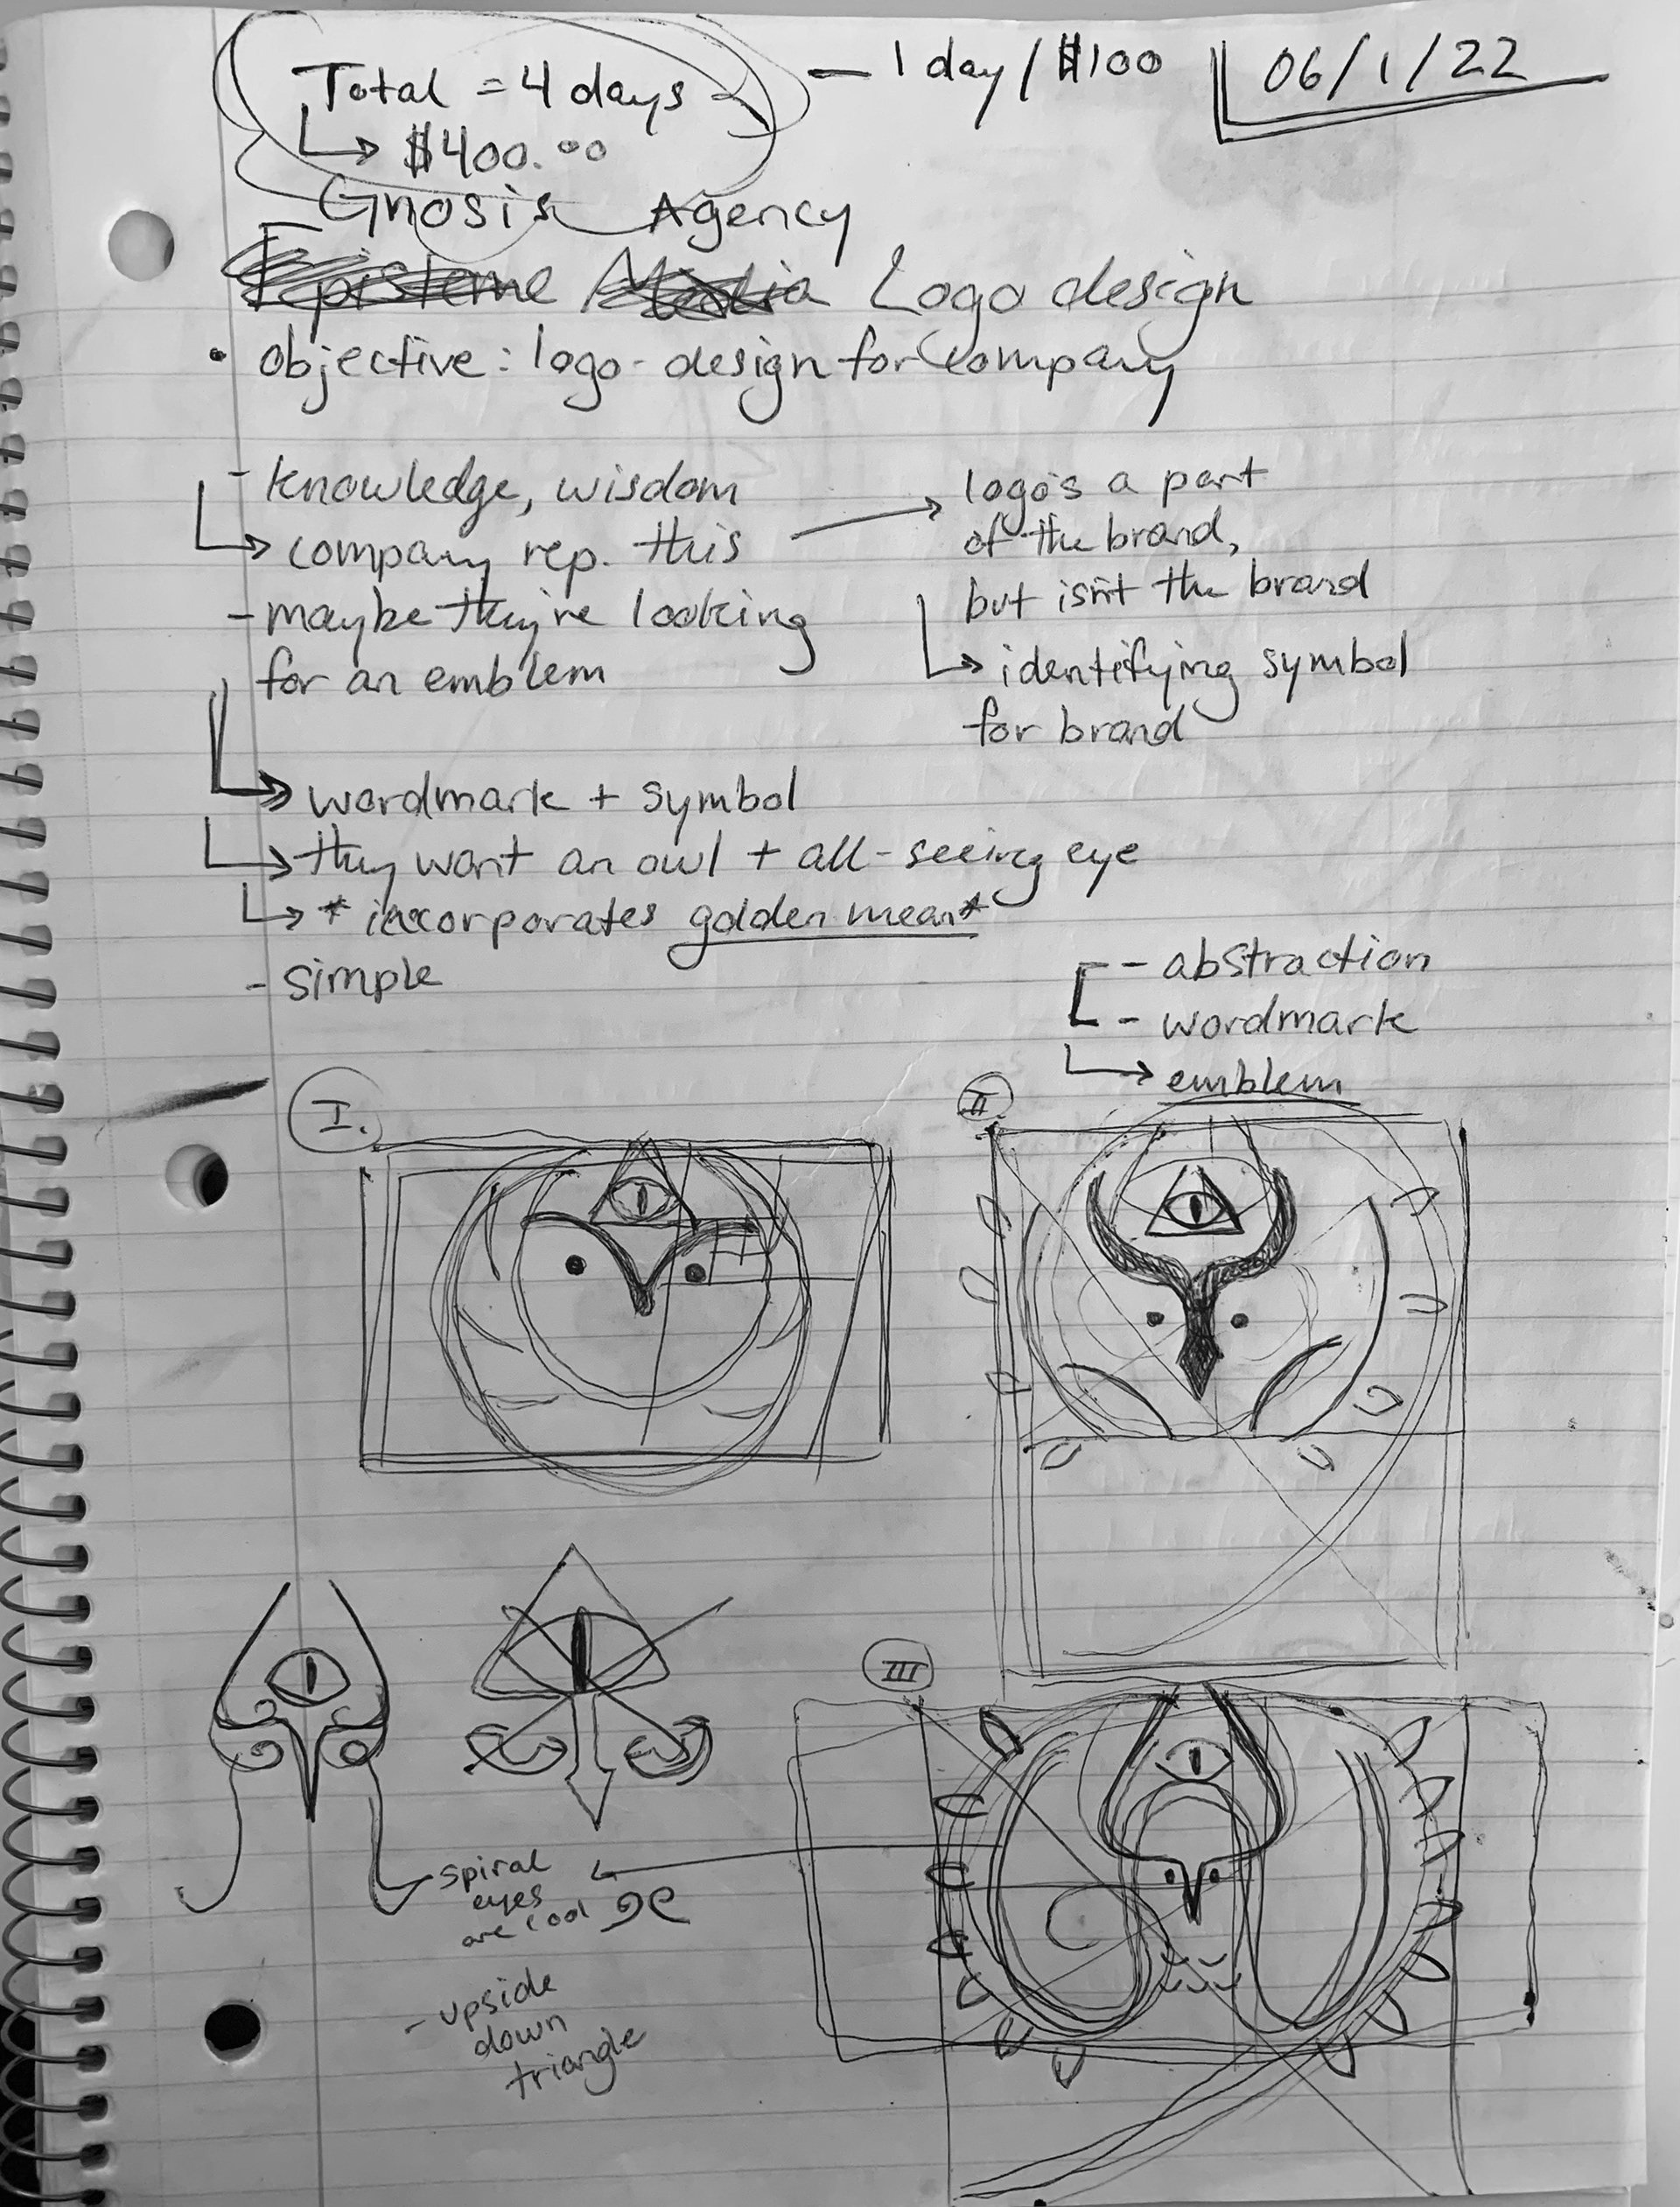 Total = 4 days — 1 day / $100
↳ $400.00
06/1/22
Gnosis Agency
Episteme Media Logo design
• objective: logo-design for company
- knowledge, wisdom
↳ company rep. this → logo's a part
of the brand,
but isn't the brand
↳ identifying symbol
for brand
- maybe they're looking
for an emblem
↳ wordmark + symbol
↳ they want an owl + all-seeing eye
↳ *incorporates golden mean*
- simple
- abstraction
- wordmark
↳ emblem
I.
II
III
spiral
eyes
are cool
- upside
down
triangle